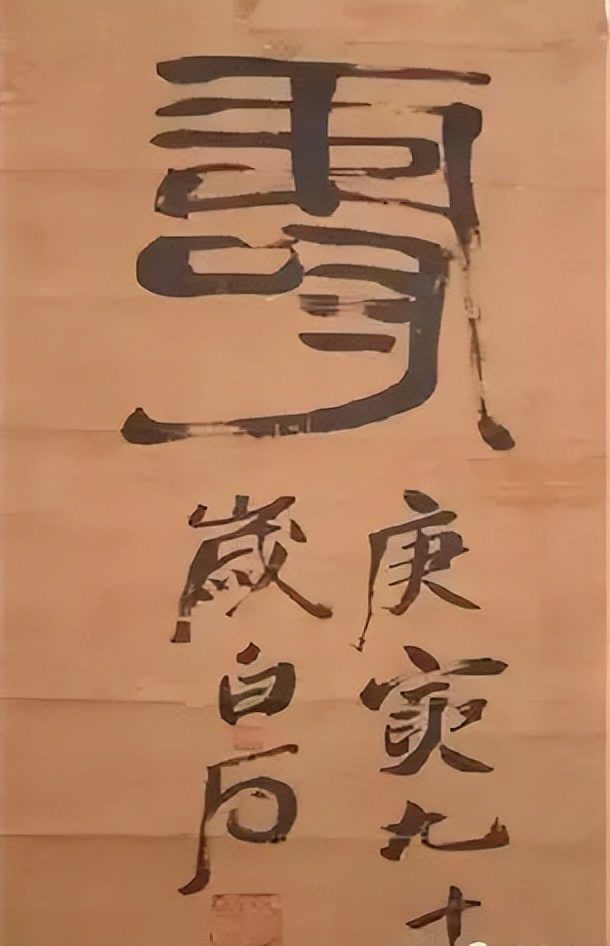 壽
庚寅九十
歲白石